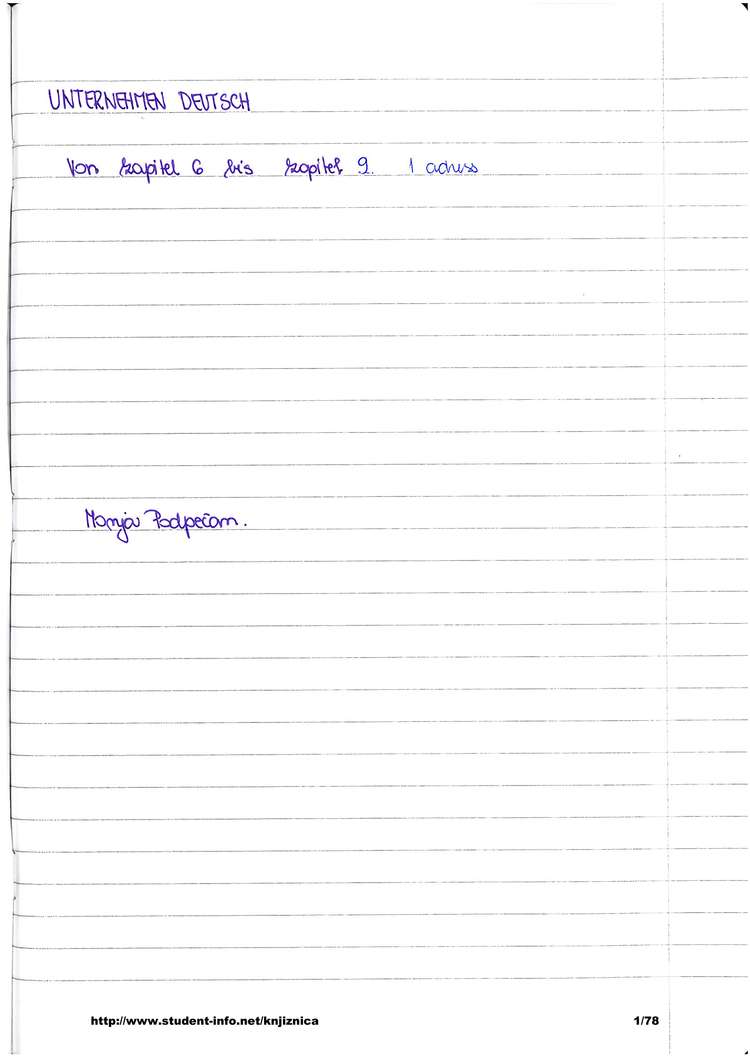 UNTERNEHMEN DEUTSCH
Von kapitel 6 bis kapitel 9. 1
Manja Podpečan.
http://www.student-info.net/knjiznica 1/78